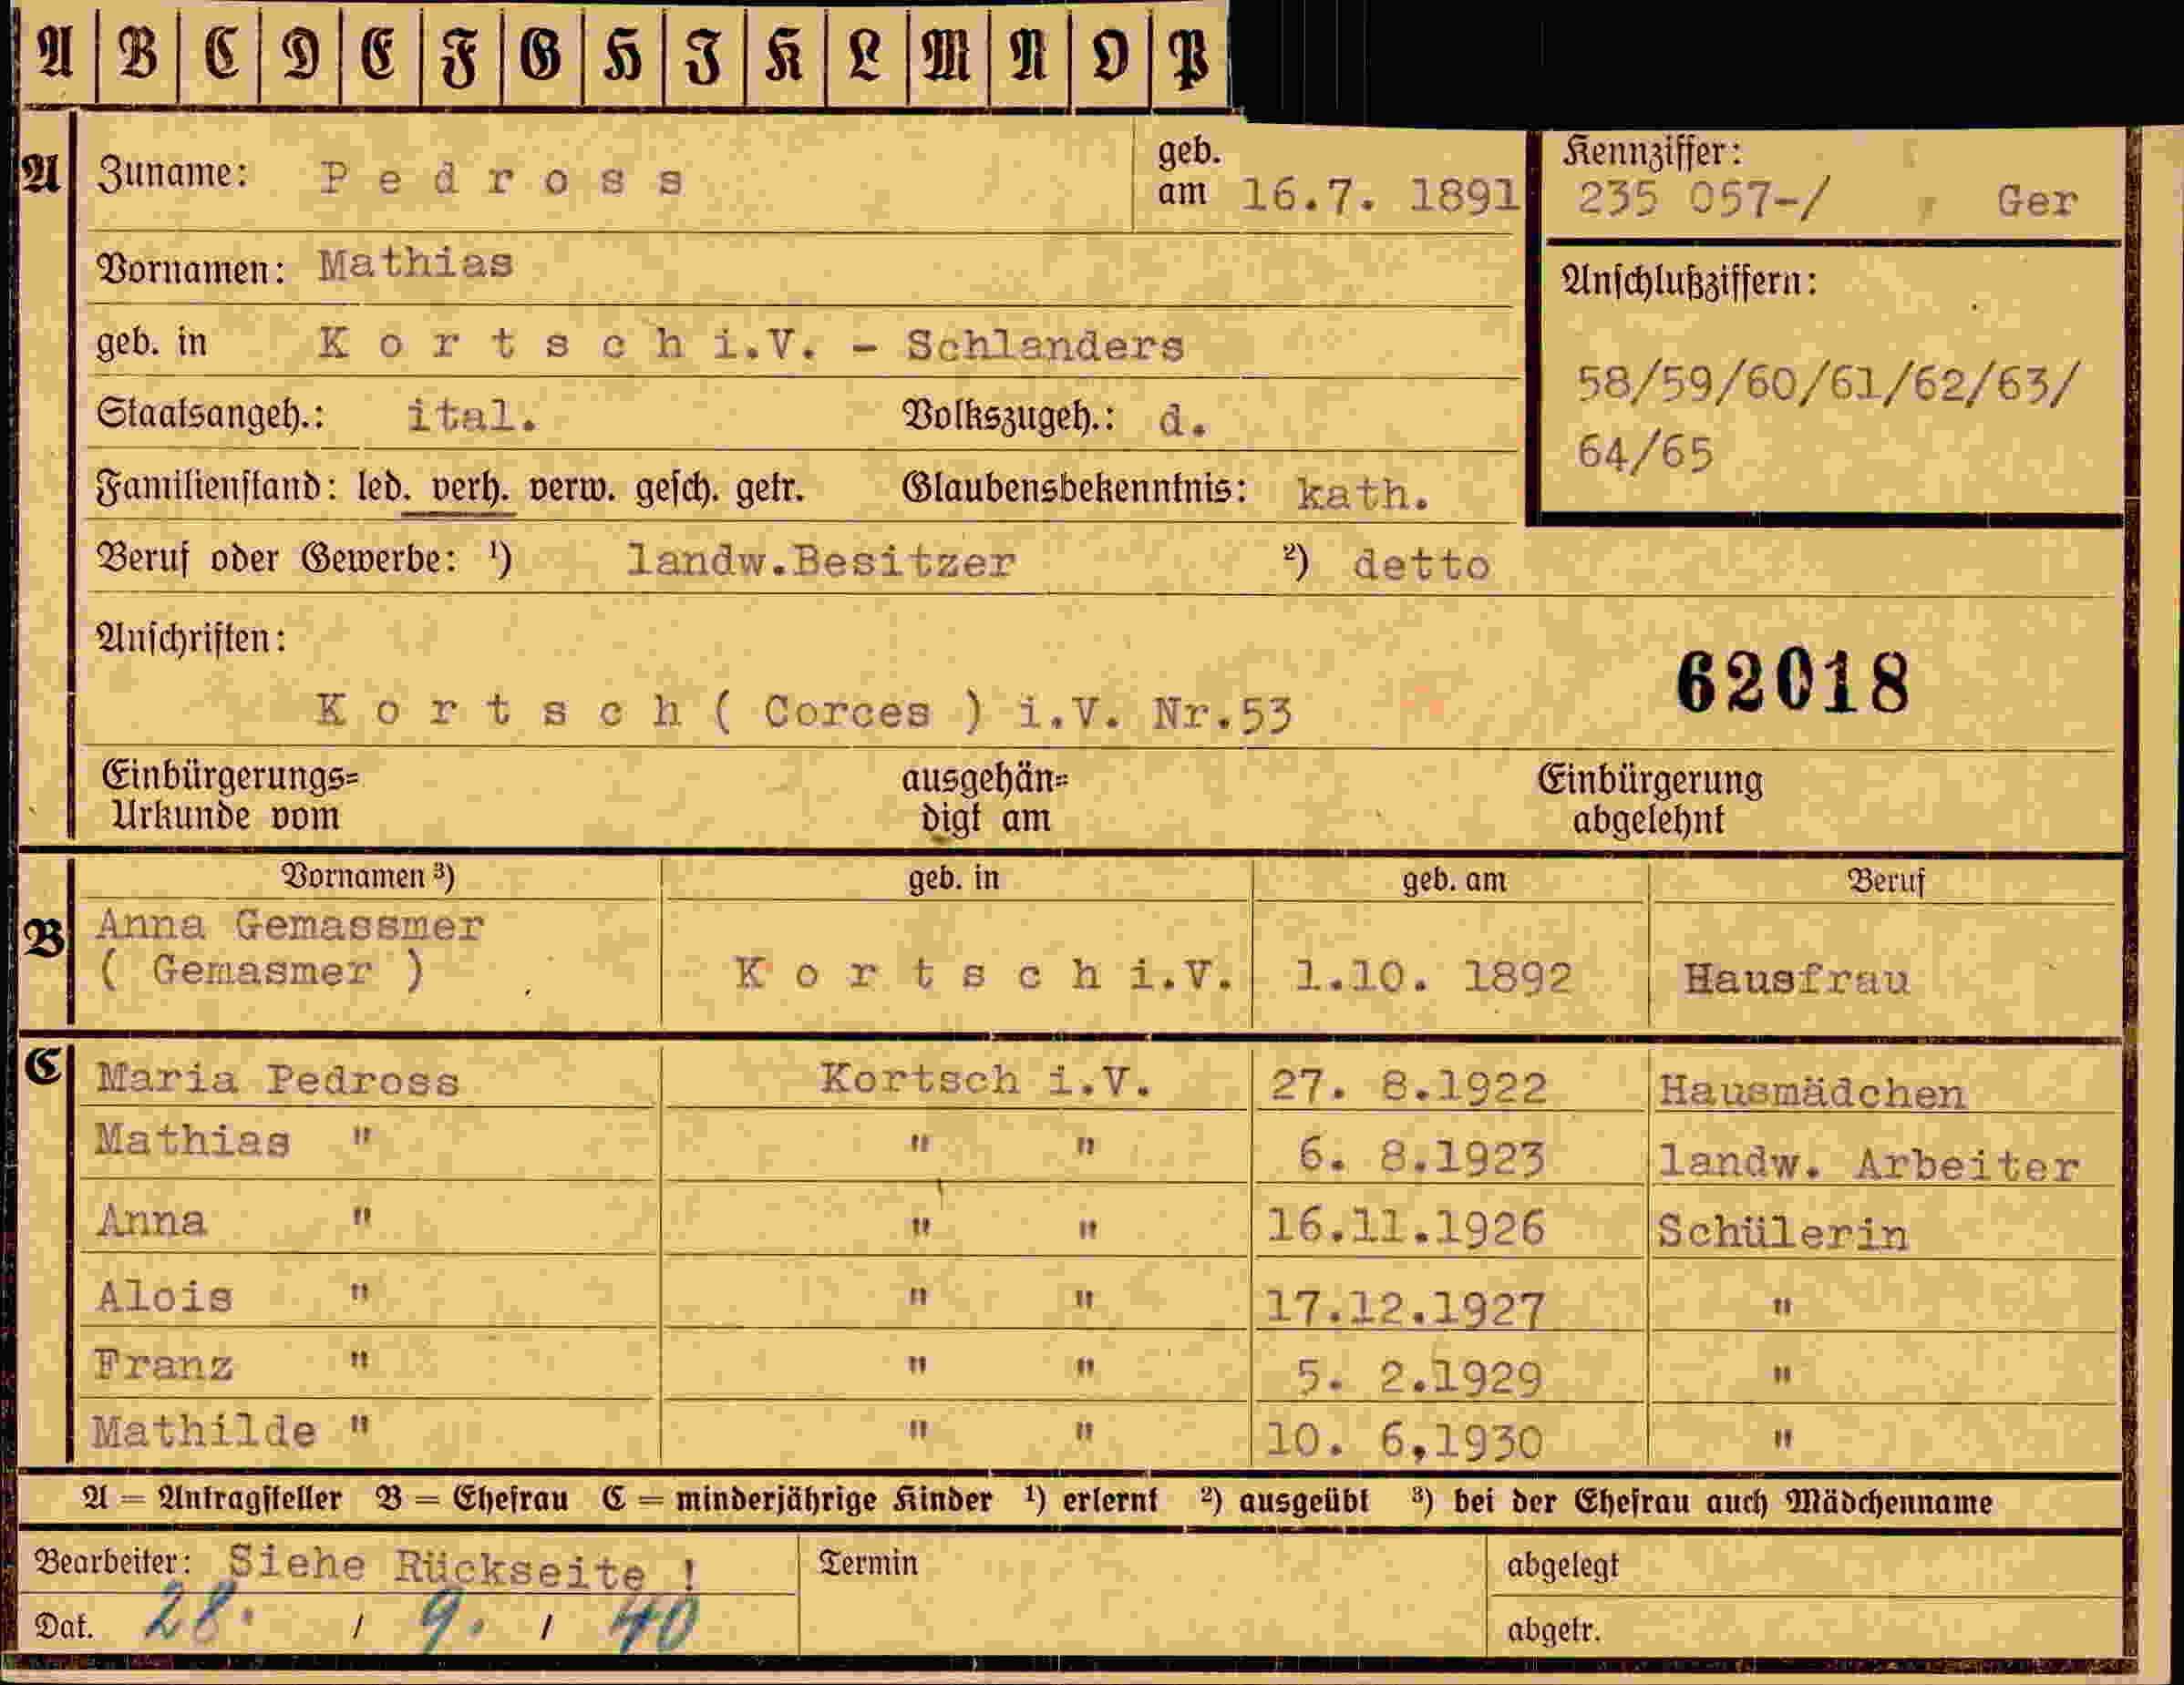 A B C D E F G H I K L M N O P
A Zuname: P e d r o s s geb. am 16.7. 1891 Kennziffer:
235 057-/ Ger
Vornamen: Mathias
Anschlußziffern:
geb. in K o r t s c h i.V. - Schlanders
58/59/60/61/62/63/
Staatsangeh.: ital. Volkszugeh.: d.
64/65
Familienstand: led. verh. verw. gesch. getr. Glaubensbekenntnis: kath.
Beruf oder Gewerbe: ¹) landw.Besitzer ²) detto
Anschriften:
62018
K o r t s c h ( Corces ) i.V. Nr.53
Einbürgerungs= ausgehän= Einbürgerung
Urkunde vom digt am abgelehnt
Vornamen ³) geb. in geb. am Beruf
B Anna Gemassmer
( Gemasmer ) K o r t s c h i.V. 1.10. 1892 Hausfrau
C Maria Pedross Kortsch i.V. 27. 8.1922 Hausmädchen
Mathias " " " 6. 8.1923 landw. Arbeiter
Anna " " " 16.11.1926 Schülerin
Alois " " " 17.12.1927 "
Franz " " " 5. 2.1929 "
Mathilde " " " 10. 6,1930 "
A = Antragsteller B = Ehefrau C = minderjährige Kinder ¹) erlernt ²) ausgeübt ³) bei der Ehefrau auch Mädchenname
Bearbeiter: Siehe Rückseite ! Termin abgelegt
Dat. 28. / 9. / 40 abgetr.